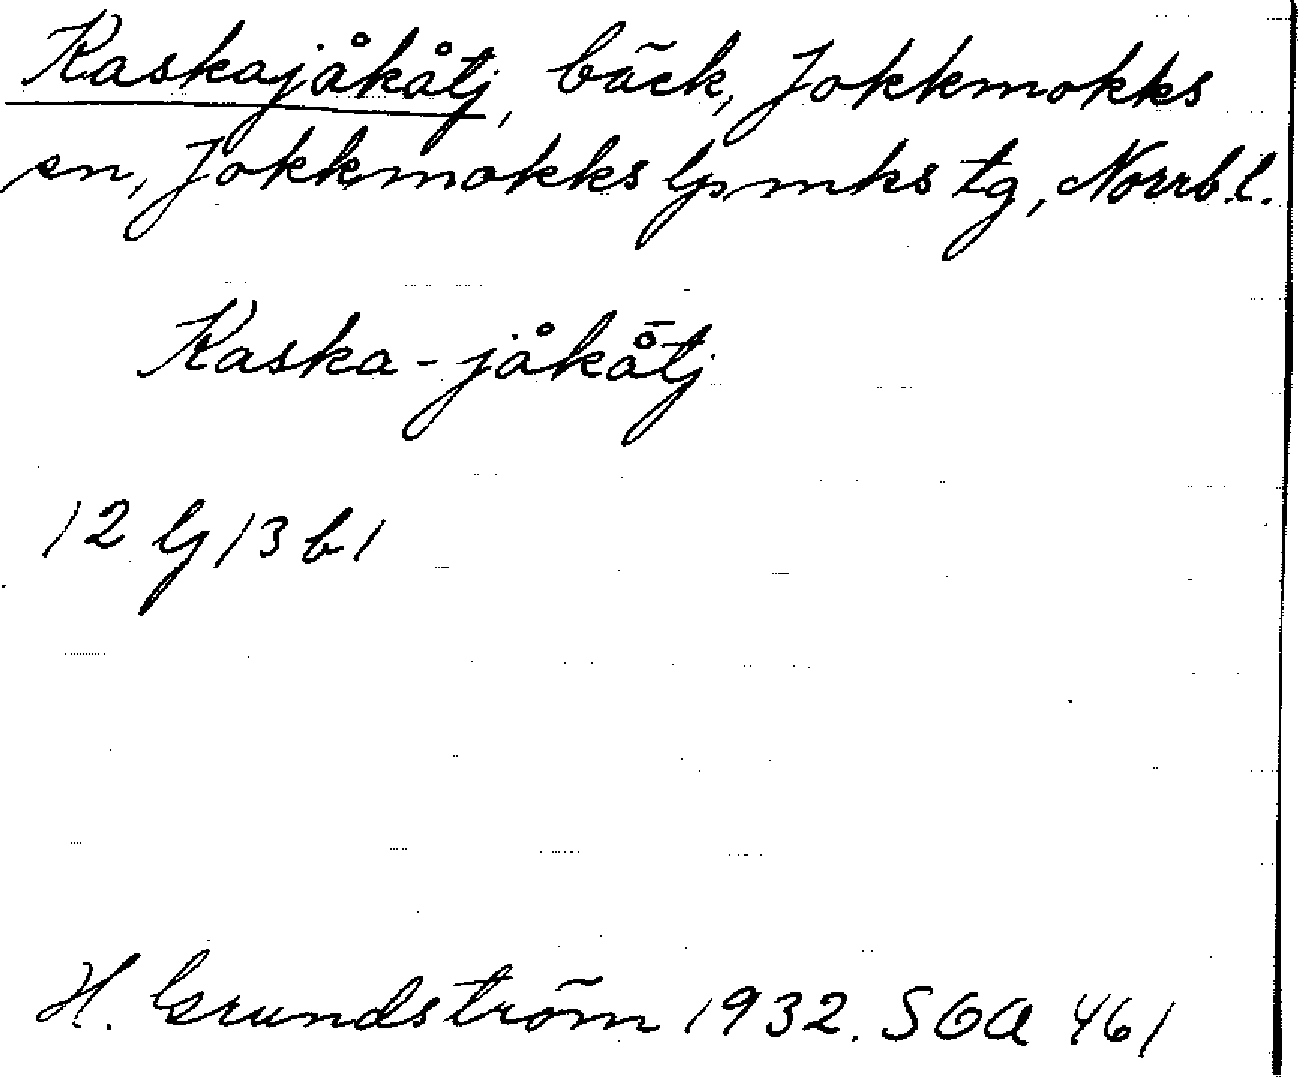 Kaskajåkåtj, bäck, Jokkmokks
sn, Jokkmokks lpmks tg, Norrb.l.
Kaska-jåkå̄tj
12 G 13 b 1
H. Grundström 1932. SOA 461